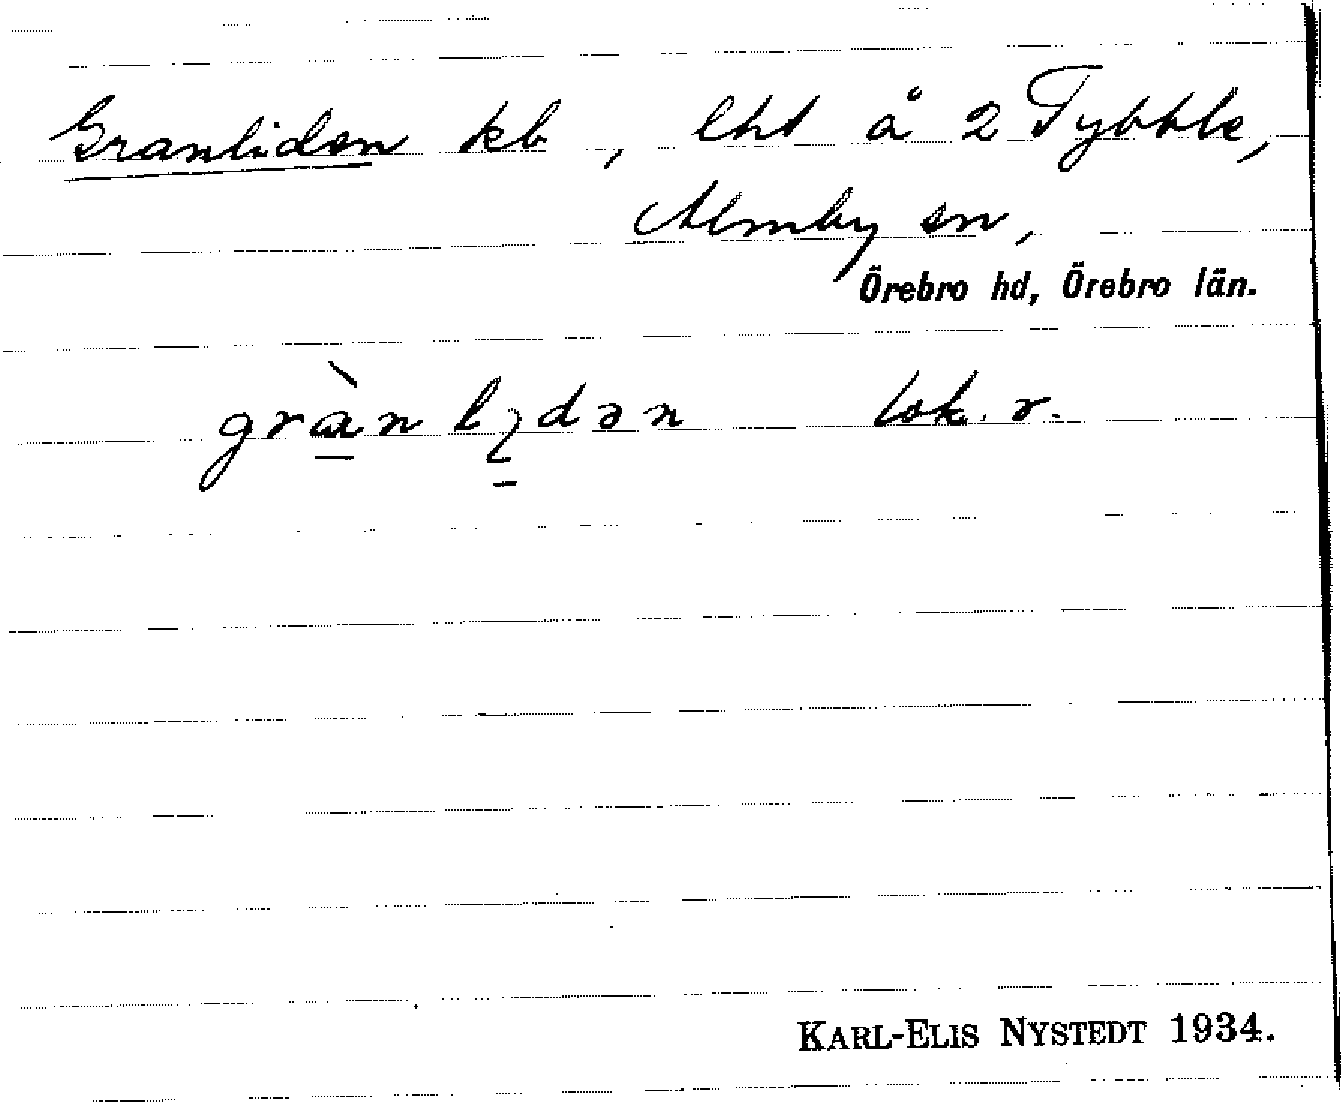 Granliden kb, lht å 2 Tybble,
Almby sn,
Örebro hd, Örebro län.
grànlıdən lok. r.
KARL-ELIS NYSTEDT 1934.